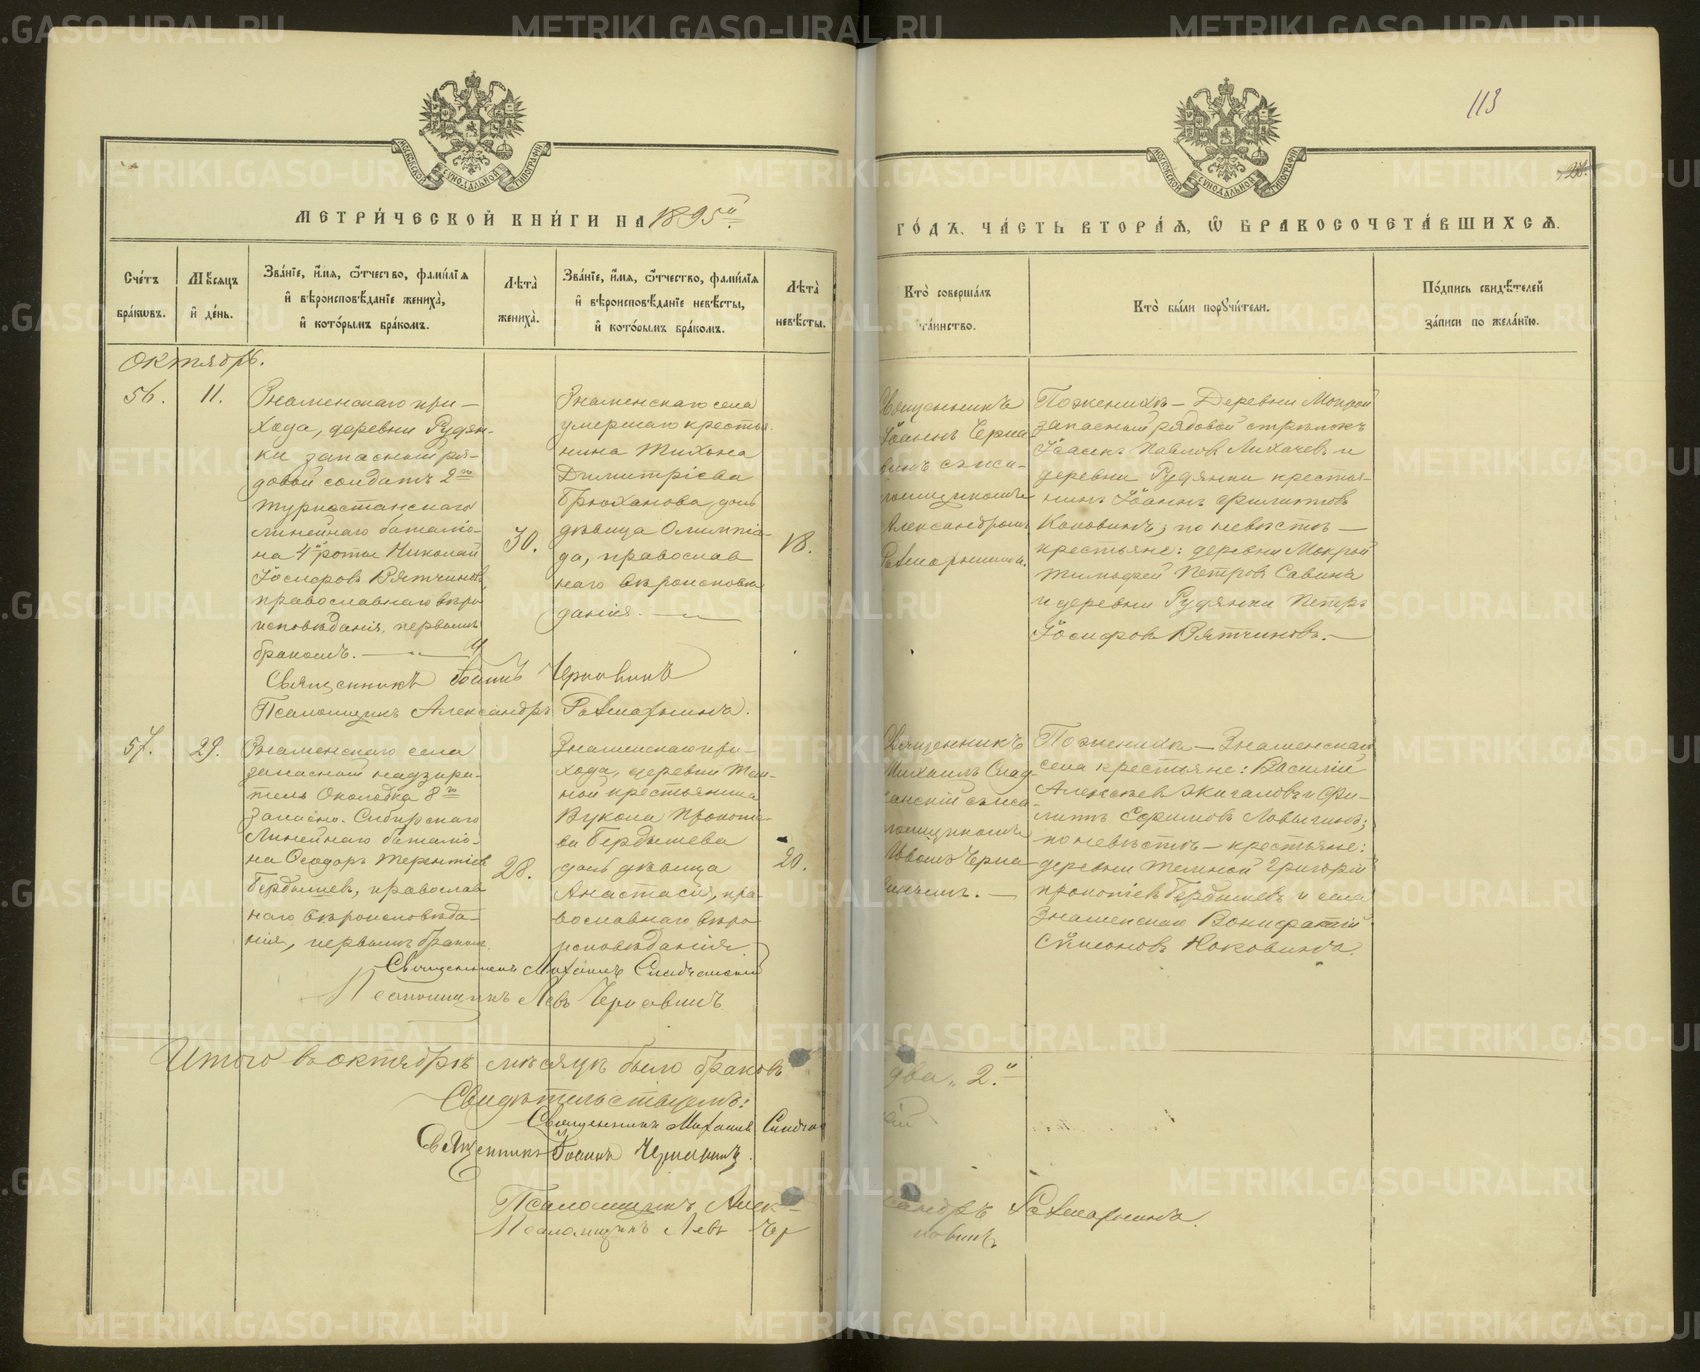 113
МОСКОВСКОЙ СѴНОДАЛЬНОЙ ТИПОГРАФІИ
МОСКОВСКОЙ СѴНОДАЛЬНОЙ ТИПОГРАФІИ
МЕТРИ́ЧЕСКОЙ КНИ́ГИ НА 1895й
ГО́ДЪ, ЧА́СТЬ ВТОРА́Я, Ѡ БРАКОСОЧЕТА́ВШИХСЯ.
Сче́тъ бра́кѡвъ.
Мѣ́сяцъ и҆ де́нь.
Зва́нїе, и҆́мя, ѻ҆́тчество, фами́лїя
и҆ вѣроисповѣ́данїе жениха̀,
и҆ кото́рымъ бра́комъ.
Лѣта̀ жениха̀.
Зва́нїе, и҆́мя, ѻ҆́тчество, фами́лїя
и҆ вѣроисповѣ́данїе невѣ́сты,
и҆ кото́рымъ бра́комъ.
Лѣта̀ невѣ́сты.
Кто̀ соверша́лъ
та́инство.
Кто̀ бы́ли порꙋчи́тели.
По́дпись свидѣ́телей
за́писи по жела́нїю.
Октябрь.
56.
11.
Знаменскаго при-
хода, деревни Рудян-
ки запасный ря-
довой солдатъ 2го
Туркестанскаго
линейнаго баталіо-
на 4й роты Николай
Іосифовъ Вятчиновъ
православнаго вѣро-
исповѣданія, первымъ
бракомъ.
30.
Знаменскаго села
умершаго крестья-
нина Тихона
Димитріева
Брюханова, дочь
дѣвица Олимпіа-
да, православ
наго вѣроисповѣ
данія.
18.
Священникъ
Іоаннъ Черна
винъ съ пса-
ломщикомъ
Александромъ
По женихѣ — Деревни Мокрой
запасный рядовой стрѣлокъ
Іоаннъ Павловъ Лихачевъ и
деревни Рудянки крестья-
нинъ Іоаннъ Филиповъ
Коковинъ; по невѣстѣ —
крестьяне: деревни Мокрой
Тимофей Петровъ Савинъ
и деревни Рудянки Петръ
Іосифовъ Вятчиновъ.
Священникъ Іоаннъ Чернавинъ
Псаломщикъ Александръ
57.
29.
Знаменскаго села
запасный надзира-
тель Околодка 8го
Запасно-Сибирскаго
Линейнаго баталіо-
на Ѳеодоръ Терентіевъ
Бердышевъ, православ
наго вѣроисповѣда-
нія, первымъ бракомъ
28.
Знаменскаго при-
хода, деревни Тем-
ной крестьянина
Вукола Прокопіе-
ва Бердышева
дочь дѣвица
Анастасія, пра-
вославнаго вѣро-
исповѣданія
20.
Священникъ
Михаилъ
съ пса-
ломщикомъ
Львомъ Черна
винымъ. —
По женихѣ — Знаменскаго
села крестьяне: Василій
Алексѣевъ Жигаловъ и Фи-
липъ Ефимовъ
по невѣстѣ — крестьяне:
деревни Темной Григорій
Прокопіевъ Бердышевъ и села
Знаменскаго Вонифатій
Симоновъ Коковинъ.
Священникъ Михаилъ
Псаломщикъ Левъ Чернавинъ
Итого въ октябрѣ мѣсяцѣ было браковъ два „2."
Свидѣтельствуемъ:
Священникъ Михаилъ
Священникъ Іоаннъ Чернавинъ.
Псаломщикъ Александръ
Псаломщикъ Левъ Чернавинъ
METRIKI.GASO-URAL.RU